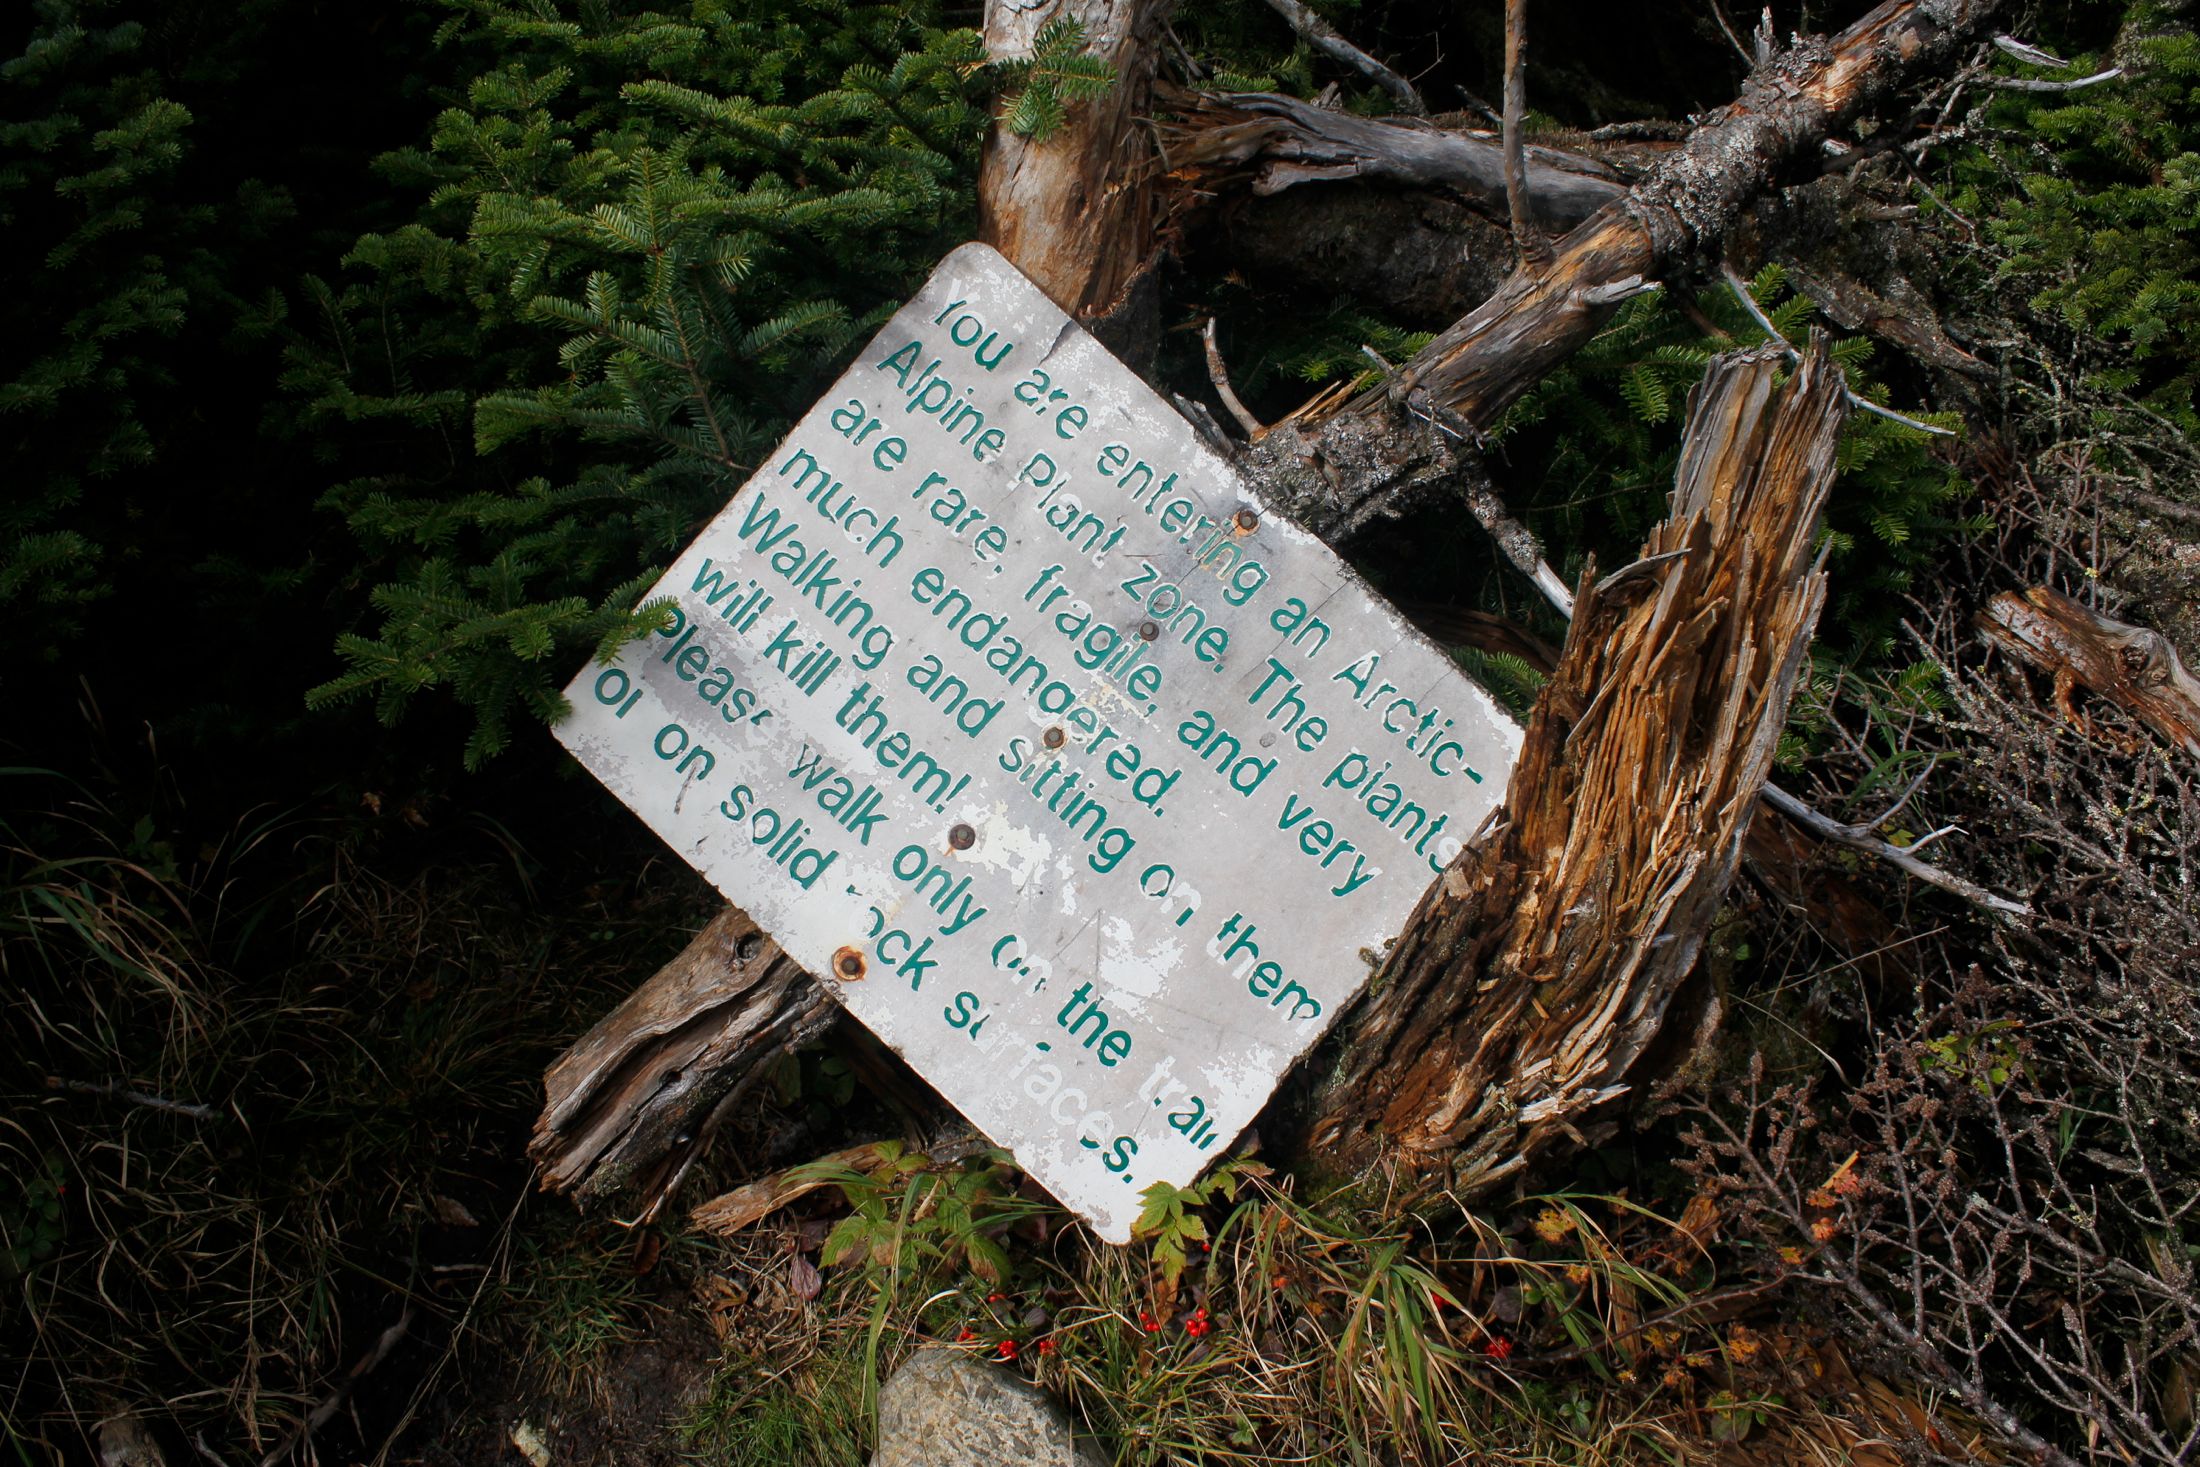 You are entering an Arctic-
Alpine Plant zone. The plants
are rare, fragile, and very
much endangered.
Walking and sitting on them
will kill them!
Please walk only on the trail
or on solid rock surfaces.